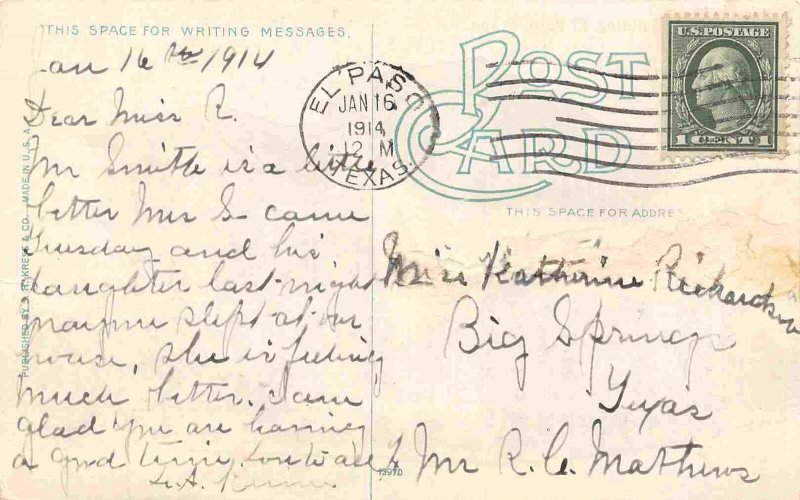 THIS SPACE FOR WRITING MESSAGES.
Jan 16th 1914
Dear Miss R.
Mr Smith is a little
better Mrs S came
Tuesday and his
daughter last night
mayme slept at our
house, she is feeling
much better. I am
glad you are having
a good time. Love to all
L.A.
PUBLISHED BY S. H. KRESS & CO. MADE IN U.S.A.
EL PASO
JAN 16
1914
12 M
TEXAS.
POST
CARD
U.S. POSTAGE
1 CENT 1
THIS SPACE FOR ADDRE
Miss Katherine Richardson
Big Springs
Texas
% Mr R. C. Mathews